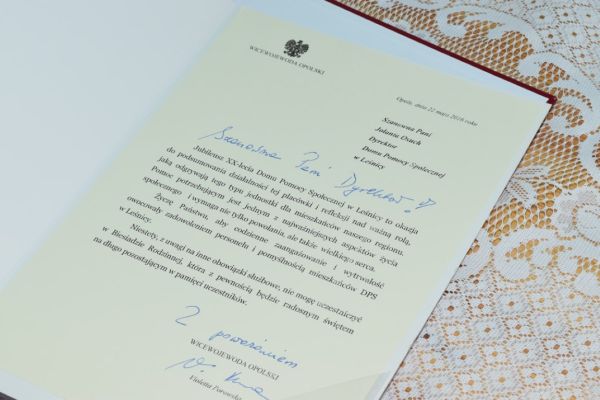 WICEWOJEWODA OPOLSKI
Opole, dnia 22 maja 2018 roku
Szanowna Pani
Jolanta Osuch
Dyrektor
Domu Pomocy Społecznej
w Leśnicy
Szanowna Pani Dyrektor!
Jubileusz XX-lecia Domu Pomocy Społecznej w Leśnicy to okazja
do podsumowania działalności tej placówki i refleksji nad ważną rolą,
jaką odgrywają tego typu jednostki dla mieszkańców naszego regionu.
Pomoc potrzebującym jest jednym z najważniejszych aspektów życia
społecznego i wymaga nie tylko powołania, ale także wielkiego serca.
Życzę Państwu, aby codzienne zaangażowanie i wytrwałość
owocowały zadowoleniem personelu i pomyślnością mieszkańców DPS
w Leśnicy.
Niestety, z uwagi na inne obowiązki służbowe, nie mogę uczestniczyć
w Biesiadzie Rodzinnej, która z pewnością będzie radosnym świętem
na długo pozostającym w pamięci uczestników.
Z poważaniem
WICEWOJEWODA OPOLSKI
Violetta Porowska